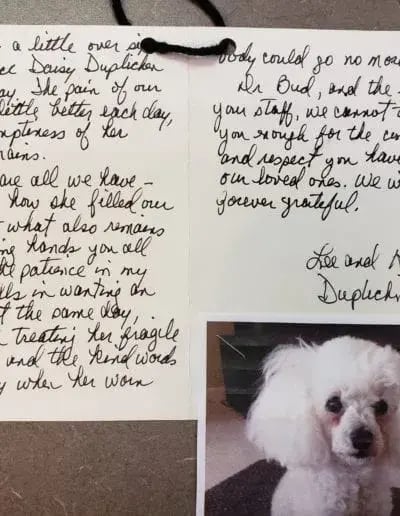 a little over si
ce Daisy Duplicken
ay. The pain of our
little better each day,
mptiness of her
mains.
are all we have —
how she filled our
t what also remains
ing hands you all
the patience in my
lls in wanting an
t the same day,
treating her fragile
and the kind words
y when her worn
body could go no mor
Dr Bud, and the
your staff, we cannot
you enough for the c
and respect you have
our loved ones. We w
forever grateful.
Lee and
Duplick